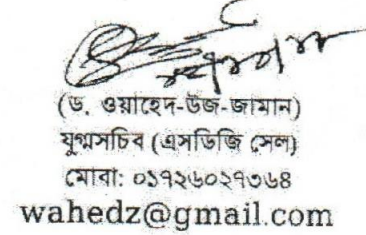 (ড. ওয়াহেদ-উজ-জামান)
যুগ্মসচিব (এসডিজি সেল)
মোবা: ০১৭২৬০২৭৩৬৪
wahedz@gmail.com